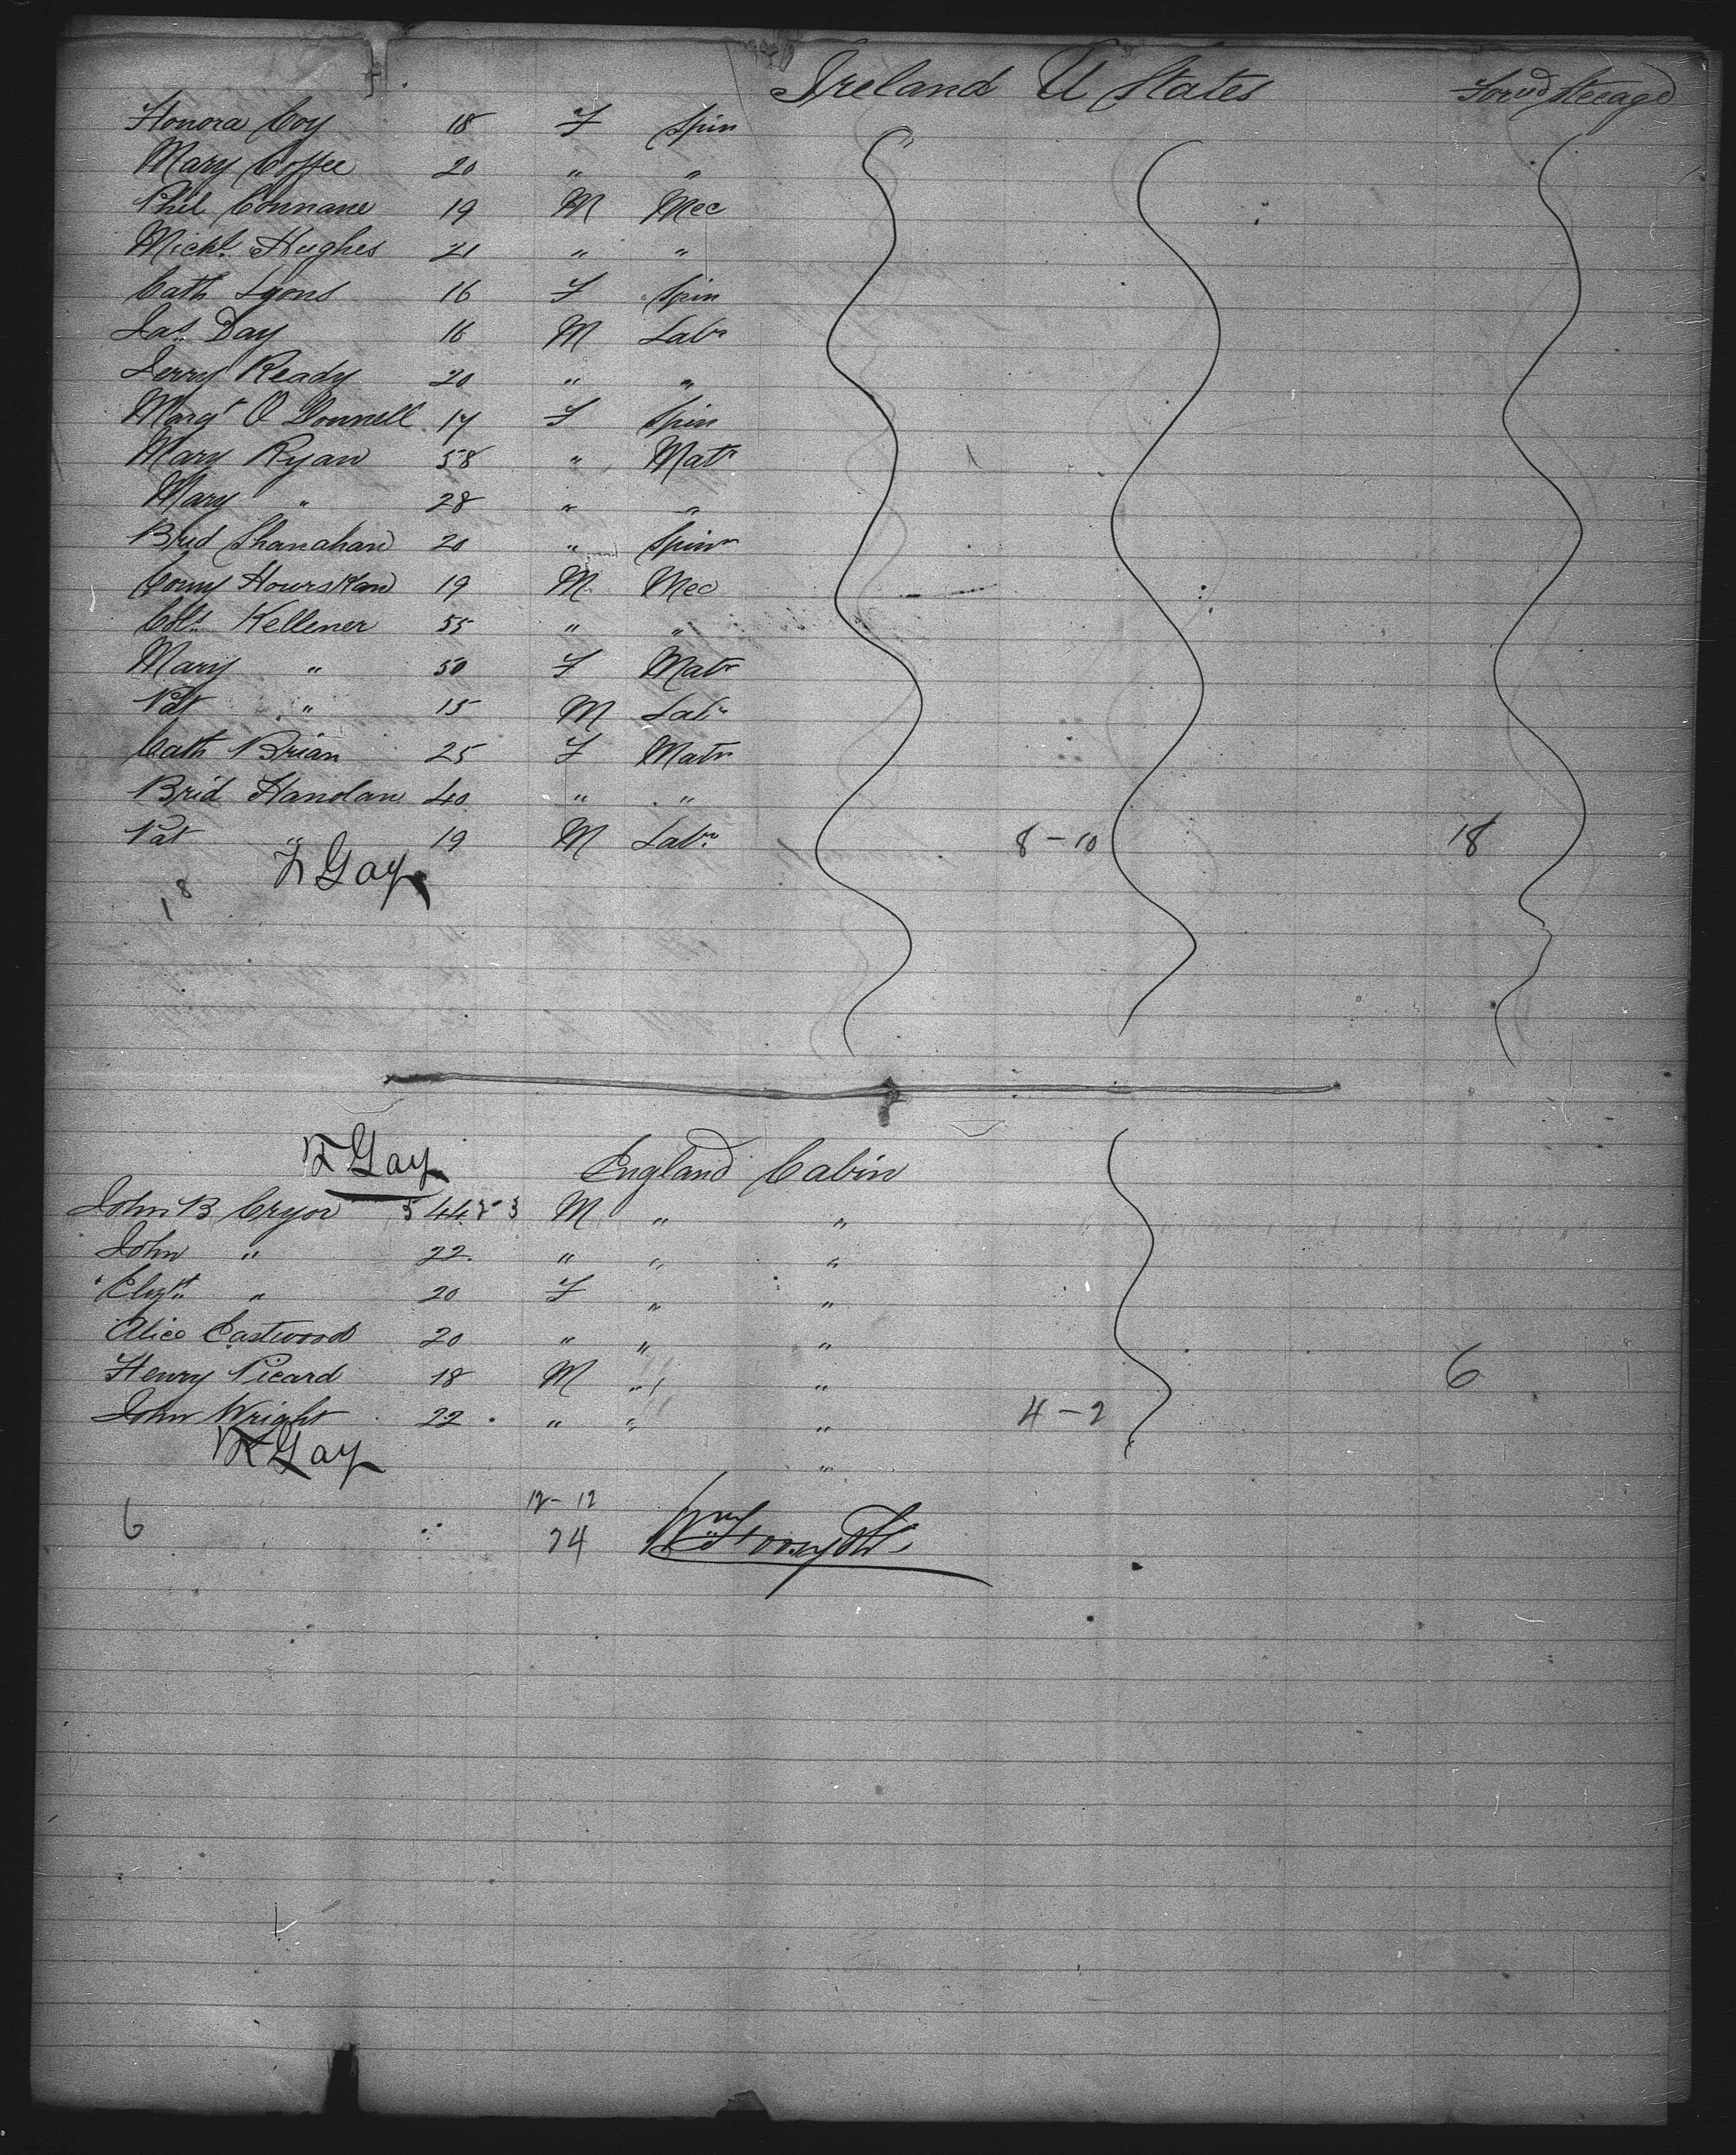 Ireland U States Forwd Steerage
Honora Coy 18 F Spin
Mary Coffee 20 " "
Phil Connane 19 M Mec
Michl. Hughes 21 " "
Cath Lyons 16 F Spin
Jas. Day 16 M Labr
Jerry Ready 20 " "
Margt O Donnell 17 F Spin
Mary Ryan 58 " Matr
Mary " 28 " "
Brid Shanahan 20 " Spinr
19 M Mec
Kellener 55 " "
Mary " 50 F Matr
Pat " 15 M Labr
Cath Brian 25 F Matr
Brid Hanolan 40 " "
Pat " 19 M Labr. 8-10 18
Gay
18
Gay England Cabin
John B Cryor 44 M " "
John " 22. " " "
Elizth " 20 F " "
Alice Eastwood 20 " " "
Henry Picard 18 M " " 6
John Wright 22. " " " 4-2
Gay "
12-12
6 24 Wm Forsyth